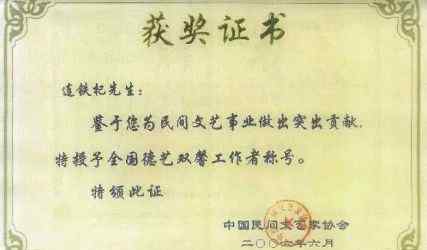 获奖证书
连铁杞先生：
鉴于您为民间文艺事业做出突出贡献,
特授予全国德艺双馨工作者称号。
特颁此证
中国民间文艺家协会
二〇〇六年六月